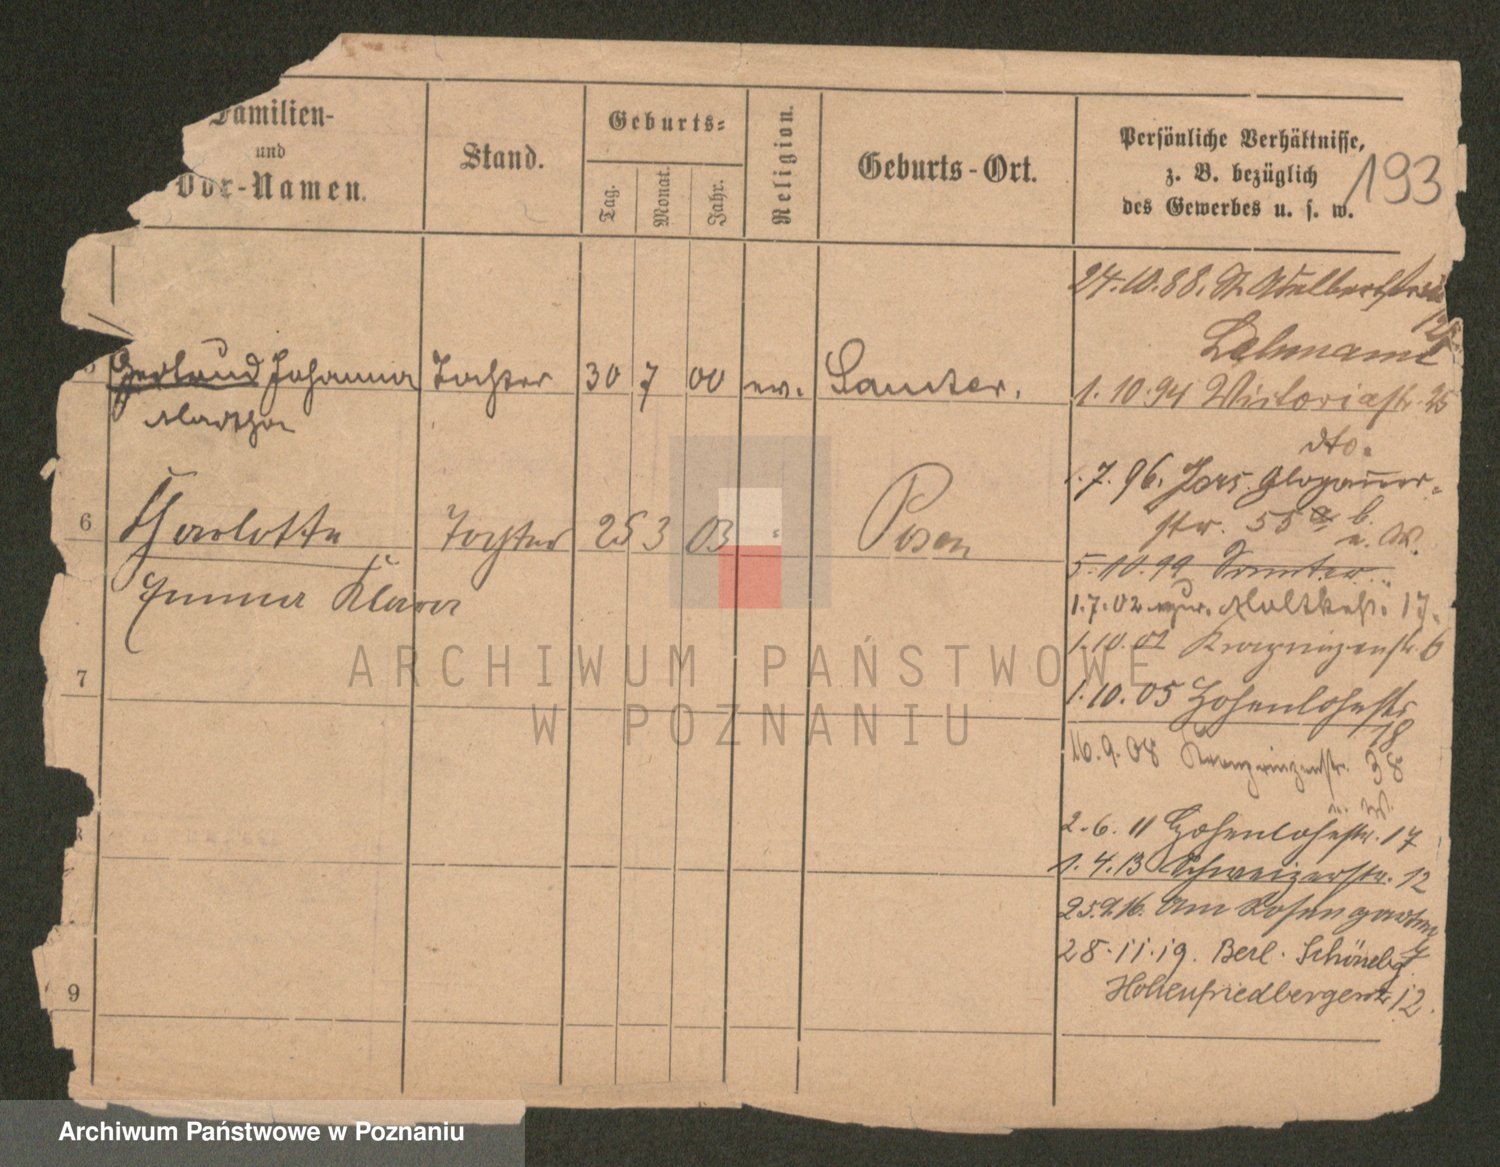 Familien-
und
Vor-Namen.
Stand.
Geburts-
Tag.
Monat.
Jahr.
Religion.
Geburts-Ort.
Persönliche Verhältnisse,
z. B. bezüglich
des Gewerbes u. s. w.
193
24.10.88. St. Adalbertstr
12
Gerland Johanna Tochter 30 7 00 ev. Samter.
Martha
1.10.94 Victoriastr. 25
dto.
1.7.96. Glogauer-
str. 55 a b.
u. W.
6 Charlotte Tochter 25 3 03 " Posen
Emma Klara
5.10.99 Samter
1.7.02 Moltkestr. 17.
1.10.02 Kronprinzenstr. 6
7
1.10.05 Hohenlohestr
18
16.9.08 Kronprinzenstr. 38
u. W.
2.6.11 Hohenlohestr. 17
1.4.13 Schweizerstr. 12
25.9.16. Am Rosengarten
7
28.11.19. Berl. Schönebg
Hohenfriedbergerstr 12.
9
ARCHIWUM PAŃSTWOWE
W POZNANIU
Archiwum Państwowe w Poznaniu